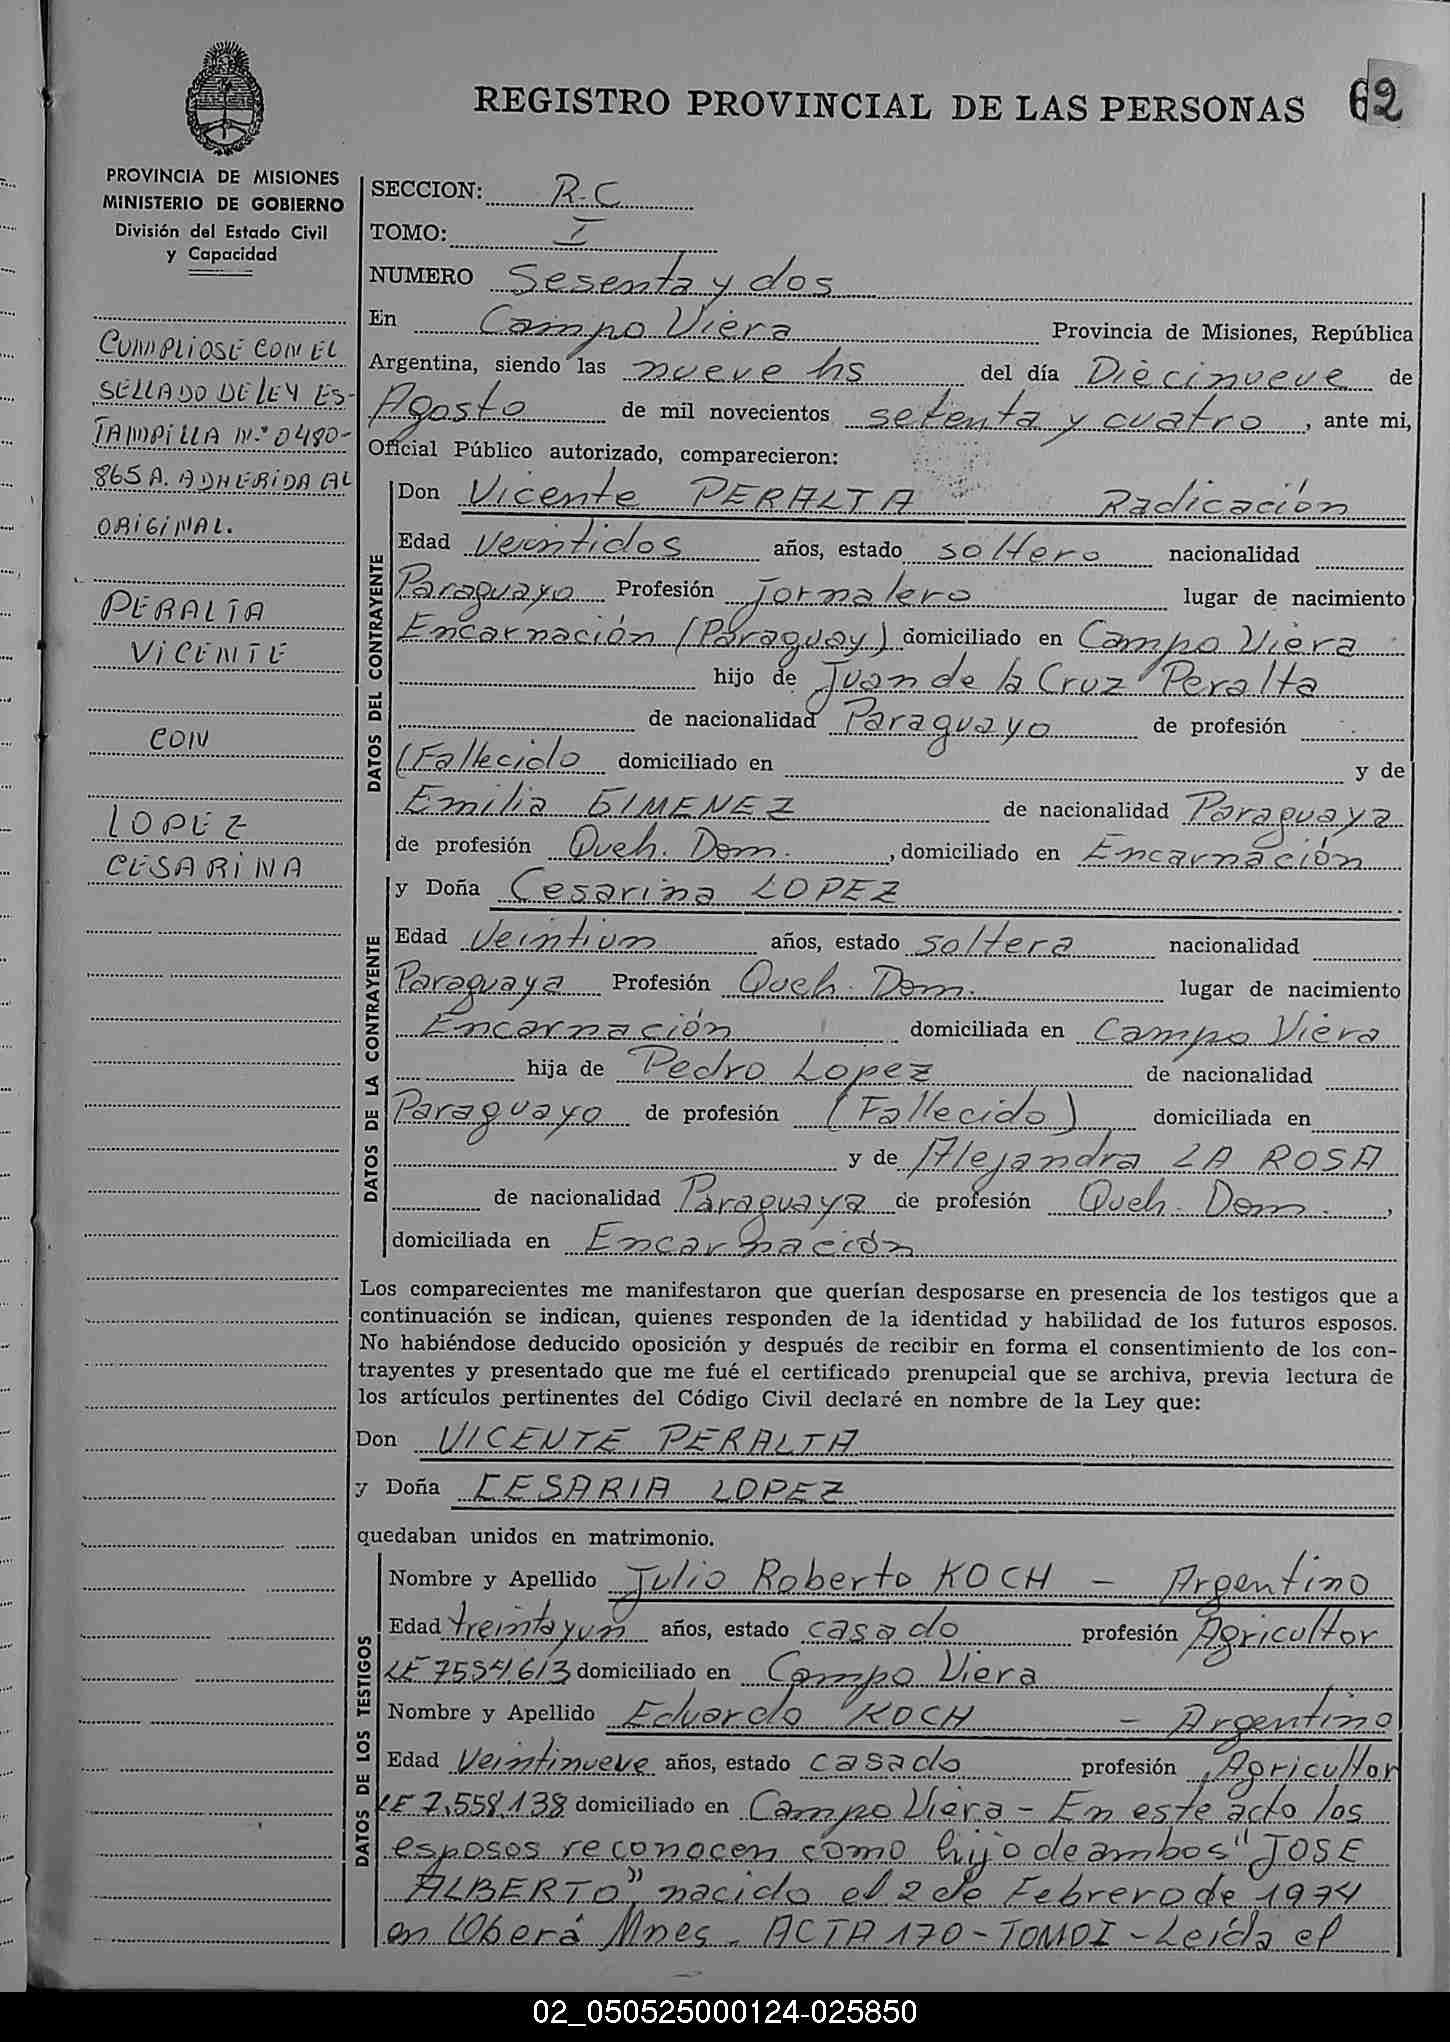 REGISTRO PROVINCIAL DE LAS PERSONAS 62
PROVINCIA DE MISIONES
MINISTERIO DE GOBIERNO
División del Estado Civil
y Capacidad
CUMPLIOSE CON EL
SELLADO DE LEY ES-
TAMPILLA N.º 0480-
865 A. ADHERIDA AL
ORIGINAL.
PERALTA
VICENTE
CON
LOPEZ
CESARINA
SECCION: R-C
TOMO: I
NUMERO Sesenta y dos
En Campo Viera Provincia de Misiones, República
Argentina, siendo las nueve hs del día Diecinueve de
Agosto de mil novecientos setenta y cuatro, ante mi,
Oficial Público autorizado, comparecieron:
DATOS DEL CONTRAYENTE
Don Vicente PERALTA Radicación
Edad Veintidos años, estado soltero nacionalidad
Paraguayo Profesión Jornalero lugar de nacimiento
Encarnación (Paraguay) domiciliado en Campo Viera
hijo de Juan de la Cruz Peralta
de nacionalidad Paraguayo de profesión
(Fallecido domiciliado en y de
Emilia GIMENEZ de nacionalidad Paraguaya
de profesión Queh. Dom. , domiciliado en Encarnación
DATOS DE LA CONTRAYENTE
y Doña Cesarina LOPEZ
Edad Veintiun años, estado soltera nacionalidad
Paraguaya Profesión Queh. Dom. lugar de nacimiento
Encarnación domiciliada en Campo Viera
hija de Pedro Lopez de nacionalidad
Paraguayo de profesión (Fallecido) domiciliada en
y de Alejandra LA ROSA
de nacionalidad Paraguaya de profesión Queh. Dom. ,
domiciliada en Encarnación
Los comparecientes me manifestaron que querían desposarse en presencia de los testigos que a
continuación se indican, quienes responden de la identidad y habilidad de los futuros esposos.
No habiéndose deducido oposición y después de recibir en forma el consentimiento de los con-
trayentes y presentado que me fué el certificado prenupcial que se archiva, previa lectura de
los artículos pertinentes del Código Civil declaré en nombre de la Ley que:
Don VICENTE PERALTA
y Doña CESARIA LOPEZ
quedaban unidos en matrimonio.
DATOS DE LOS TESTIGOS
Nombre y Apellido Julio Roberto KOCH - Argentino
Edad treinta y un años, estado casado profesión Agricultor
LE 7554.613 domiciliado en Campo Viera
Nombre y Apellido Eduardo KOCH - Argentino
Edad Veintinueve años, estado casado profesión Agricultor
LE 7.558.138 domiciliado en Campo Viera - En este acto los
esposos reconocen como hijo de ambos "JOSE
ALBERTO", nacido el 2 de Febrero de 1974
en Oberá Mnes. ACTA 170 - TOMO I - Leída el
02_050525000124-025850